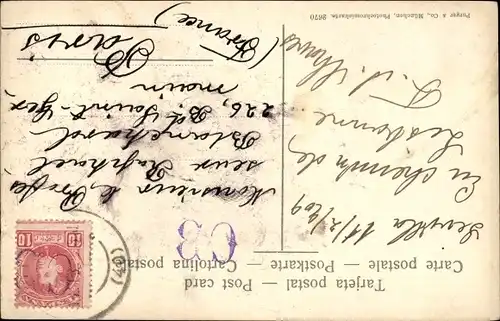 Tarjeta postal — Post card
Carte postale — Postkarte — Cartolina postale
Purger & Co., München, Photochromiekarte. 2670
C3
Sevilla 11/2/909
En chemin de
Lisbonne
Monsieur le Profes
seur Raphael
Blanchard
226, Bd. Saint-Ger
main
Paris
(France)
10
10